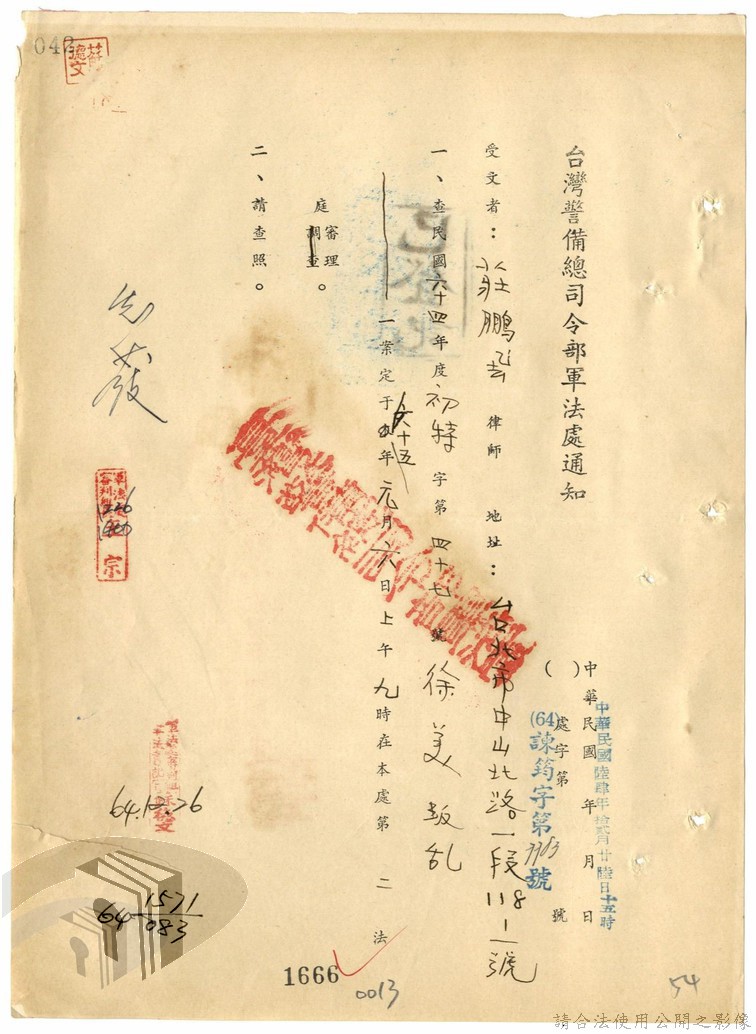 台灣警備總司令部軍法處通知
中華民國 年 月 日
中華民國陸肆年拾貳月廿陸日十五時
( ) 處字第 號
(64)諫筠字第 號
受文者：莊鵬 律師 地址：台北市中山北路一段118-1號
一、查民國六十四年度初特字第四十七號徐美叛乱
一案定于六十五年元月六日上午九時在本處第二法
庭審理
調查。
二、請查照。
已登記
先發
64.12.26
1571
64
083
1666
0013
54
請合法使用公開之影像